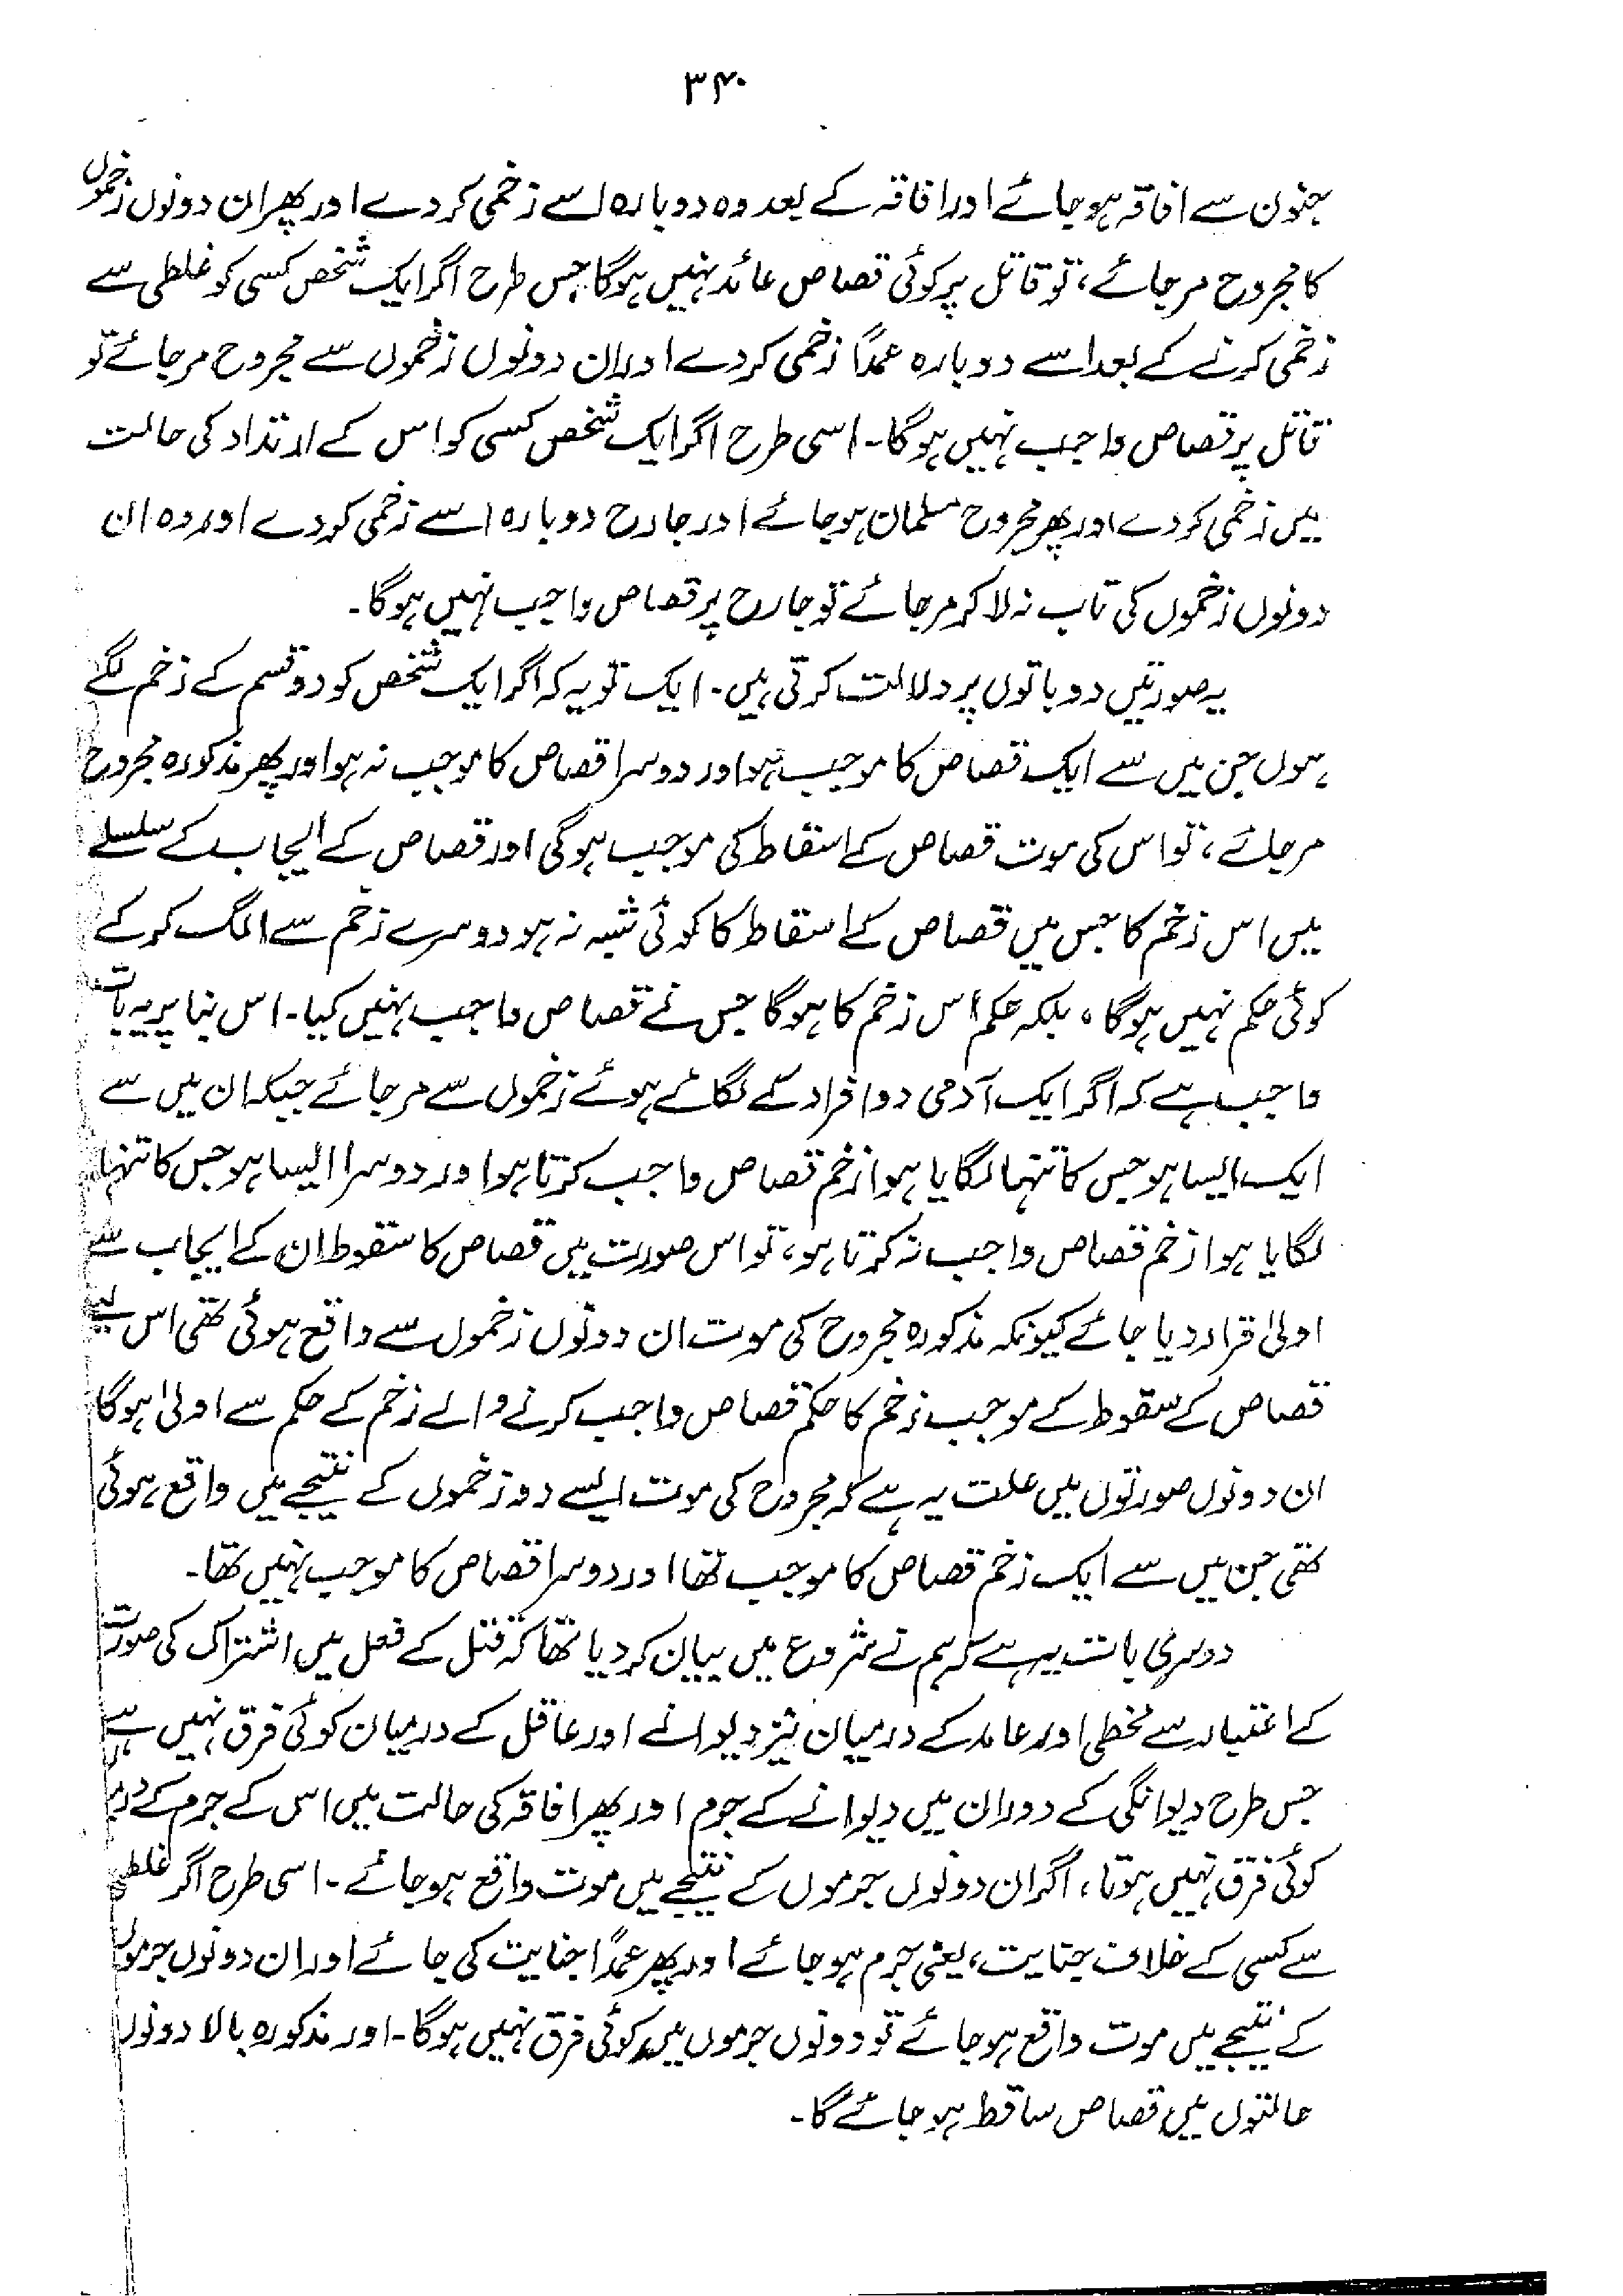 ۳۴۰
جنون سے افاقہ ہو جائے اور افاقہ کے بعد وہ دوبارہ اسے زخمی کردے اور پھر ان دونوں زخموں
کا مجروح مرجائے، تو قاتل پر کوئی قصاص عائد نہیں ہوگا جس طرح اگر ایک شخص کسی کو غلطی سے
زخمی کرنے کے بعد اسے دوبارہ عمداً زخمی کردے اور ان دونوں زخموں سے مجروح مرجائے تو
قاتل پر قصاص واجب نہیں ہوگا۔ اسی طرح اگر ایک شخص کسی کو اس کے ارتداد کی حالت
میں زخمی کردے اور پھر مجروح مسلمان ہو جائے اور جارح دوبارہ اسے زخمی کردے اور وہ ان
دونوں زخموں کی تاب نہ لاکر مرجائے تو جارح پر قصاص واجب نہیں ہوگا۔
یہ صورتیں دو باتوں پر دلالت کرتی ہیں۔ ایک تو یہ کہ اگر ایک شخص کو دو قسم کے زخم لگے
ہوں جن میں سے ایک قصاص کا موجب ہو اور دوسرا قصاص کا موجب نہ ہو اور پھر مذکورہ مجروح
مرجائے، تو اس کی موت قصاص کے اسقاط کی موجب ہوگی اور قصاص کے ایجاب کے سلسلے
میں اس زخم کا جس میں قصاص کے اسقاط کا کوئی شبہ نہ ہو دوسرے زخم سے الگ کرکے
کوئی حکم نہیں ہوگا، بلکہ حکم اس زخم کا ہوگا جس نے قصاص واجب نہیں کیا۔ اس بنا پر یہ بات
واجب ہے کہ اگر ایک آدمی دو افراد کے لگائے ہوئے زخموں سے مرجائے جبکہ ان میں سے
ایک ایسا ہو جس کا تنہا لگایا ہوا زخم قصاص واجب کرتا ہو اور دوسرا ایسا ہو جس کا تنہا
لگایا ہوا زخم قصاص واجب نہ کرتا ہو، تو اس صورت میں قصاص کا سقوط ان کے ایجاب سے
اولیٰ قرار دیا جائے کیونکہ مذکورہ مجروح کی موت ان دونوں زخموں سے واقع ہوئی تھی اس لیے
قصاص کے سقوط کے موجب زخم کا حکم قصاص واجب کرنے والے زخم کے حکم سے اولیٰ ہوگا
ان دونوں صورتوں میں علت یہ ہے کہ مجروح کی موت ایسے دو زخموں کے نتیجے میں واقع ہوئی
تھی جن میں سے ایک زخم قصاص کا موجب تھا اور دوسرا قصاص کا موجب نہیں تھا۔
دوسری بات یہ ہے کہ ہم نے شروع میں بیان کردیا تھا کہ قتل کے فعل میں اشتراک کی صورت
کے اعتبار سے مخطی اور عامد کے درمیان نیز دیوانے اور عاقل کے درمیان کوئی فرق نہیں ہے
جس طرح دیوانگی کے دوران میں دیوانے کے جرم اور پھر افاقہ کی حالت میں اس کے جرم کے
کوئی فرق نہیں ہوتا، اگر ان دونوں جرموں کے نتیجے میں موت واقع ہو جائے۔ اسی طرح اگر غلطی
سے کسی کے خلاف جنایت، یعنی جرم ہو جائے اور پھر عمداً جنایت کی جائے اور ان دونوں جرموں
کے نتیجے میں موت واقع ہو جائے تو دونوں جرموں میں کوئی فرق نہیں ہوگا۔ اور مذکورہ بالا دونوں
حالتوں میں قصاص ساقط ہو جائے گا۔